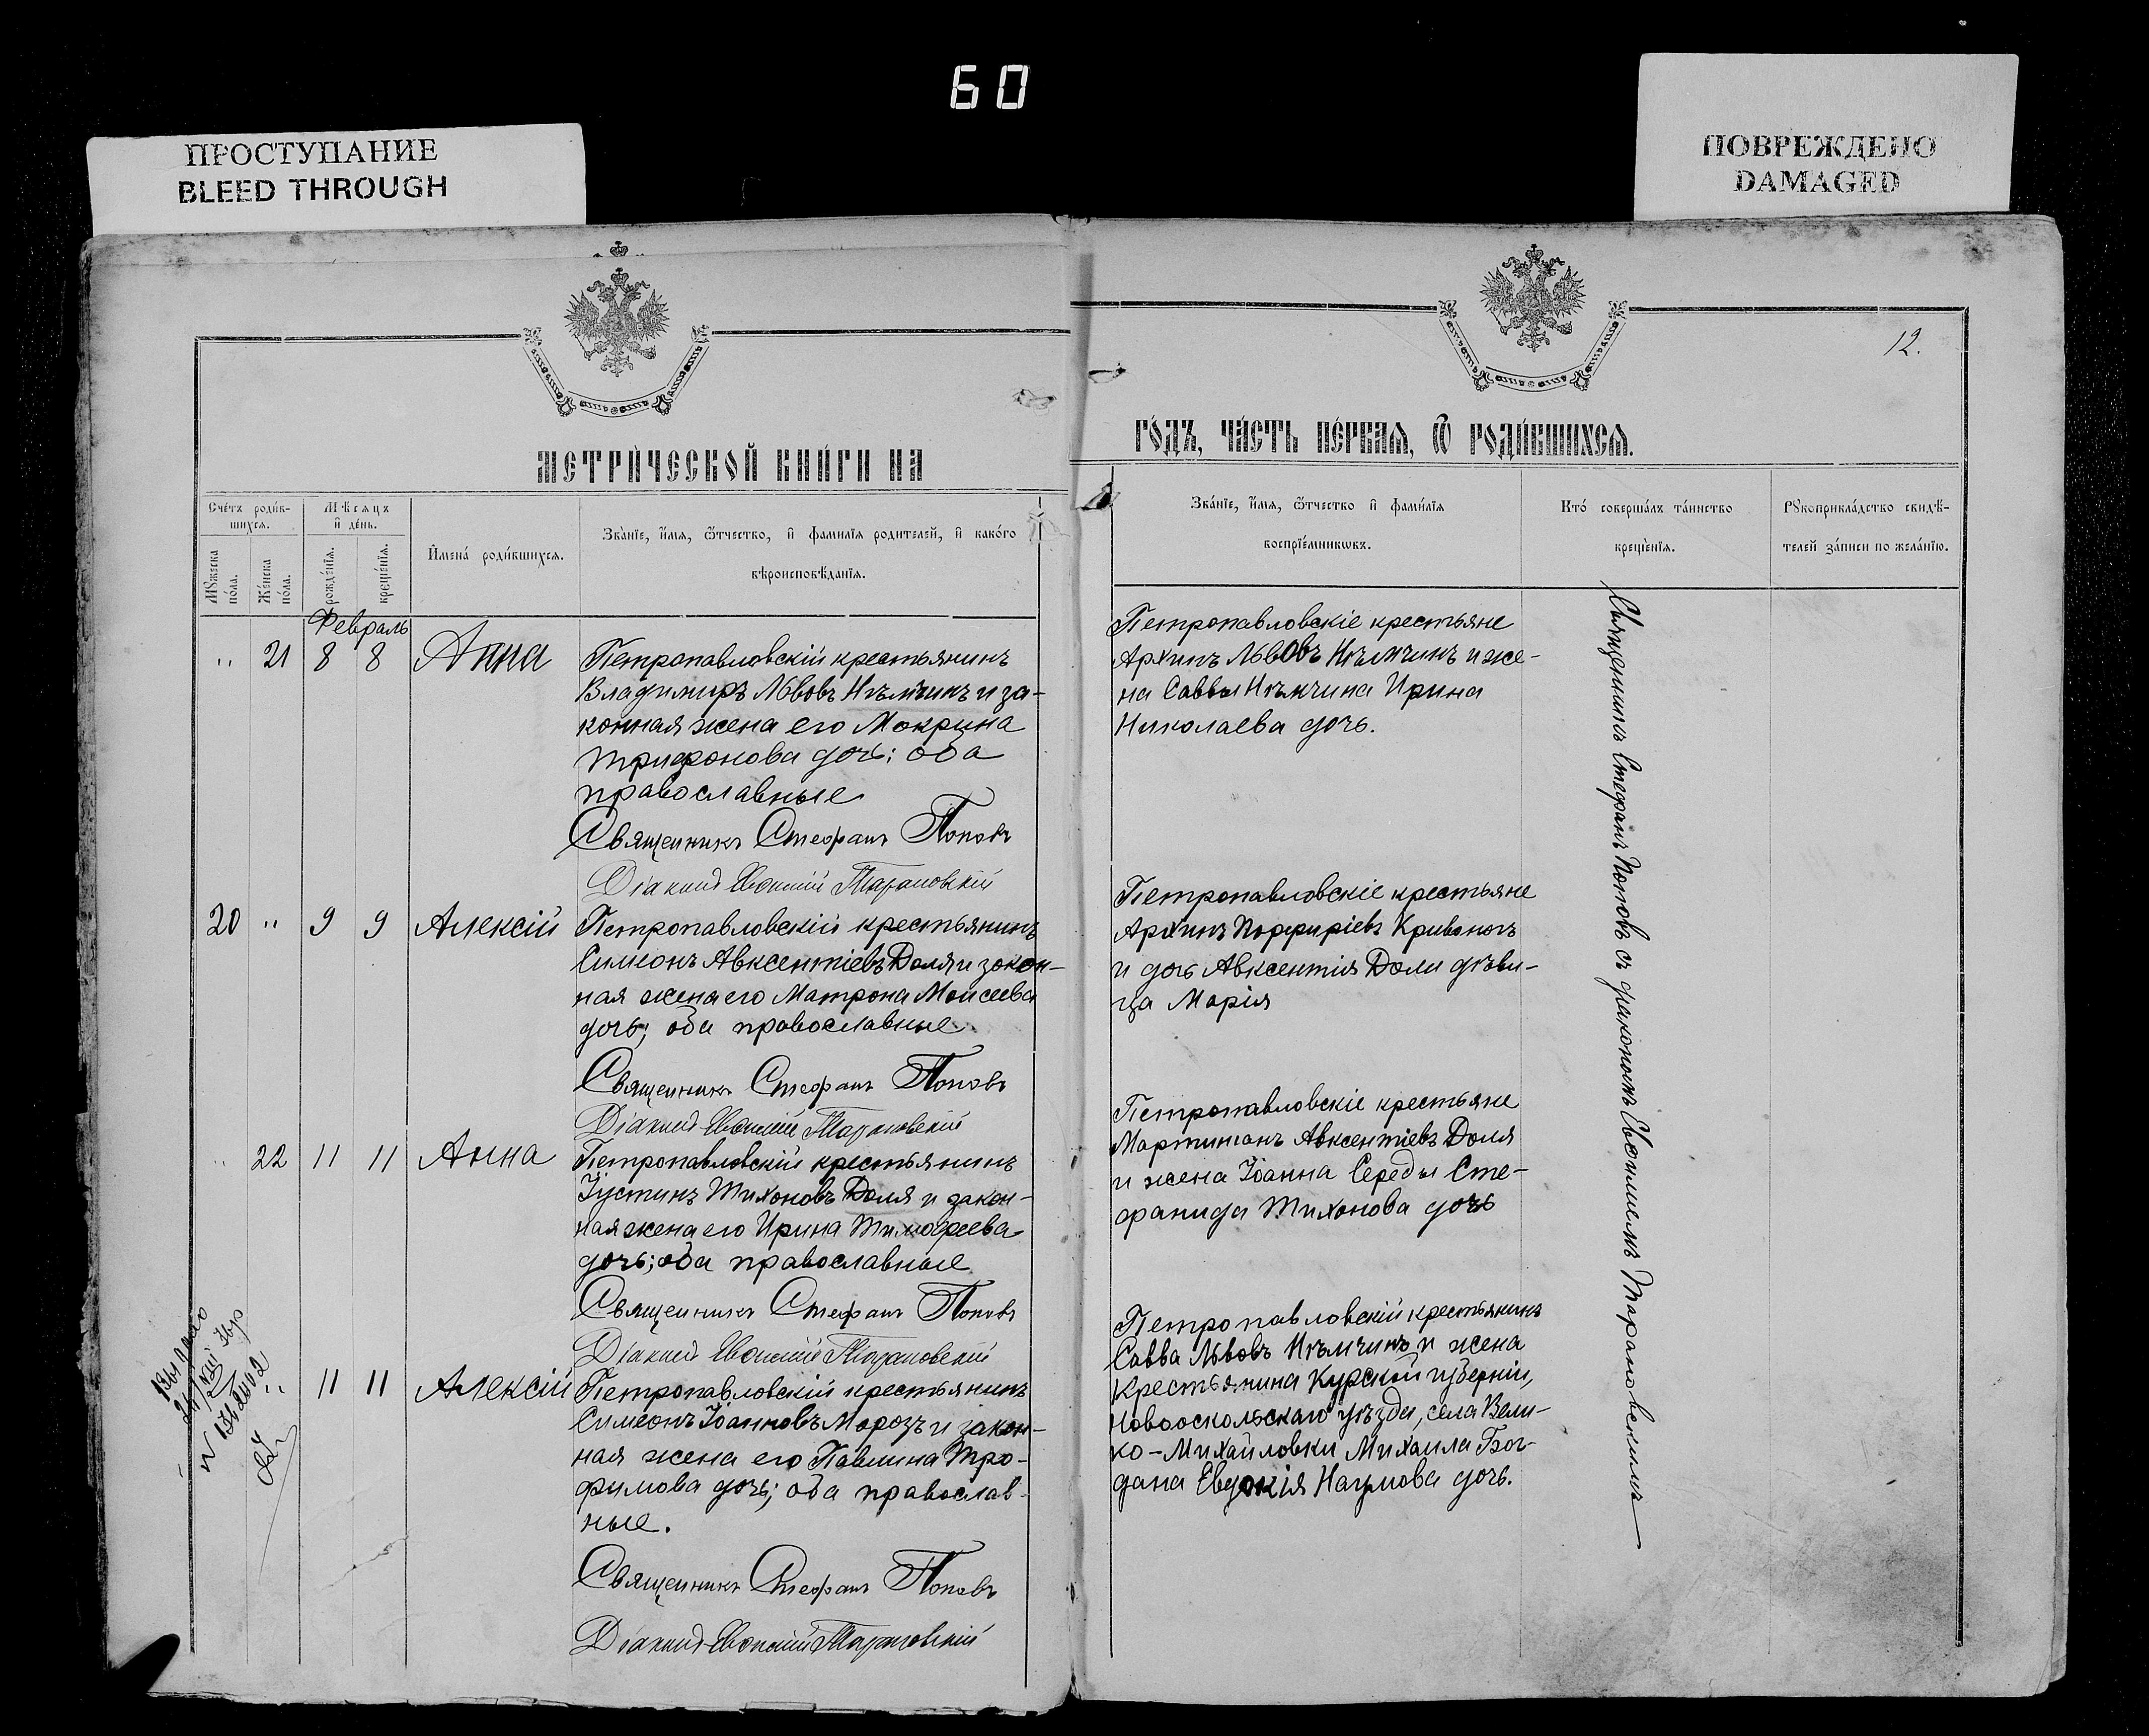 60
ПРОСТУПАНИЕ
BLEED THROUGH
ПОВРЕЖДЕНО
DAMAGED
12.
МЕТРИ́ЧЕСКОЙ КНИ́ГИ НА
ГО́ДЪ, ЧА́СТЬ ПЕ́РВАѦ, Ѽ РОДИ́ВШИХСѦ.
Сче́тъ роди́в-
шихсѧ.
Мѣсѧцъ
и҆ де́нь.
Мꙋ́жеска
по́ла.
Же́нска
по́ла.
рожде́нїѧ.
креще́нїѧ.
И҆мена̀ роди́вшихсѧ.
Зва́нїе, и҆́мѧ, ѻ҆́тчество, и҆ фами́лїѧ роди́телей, и҆ како́гѡ
вѣроисповѣ́данїѧ.
Зва́нїе, и҆́мѧ, ѻ҆́тчество и҆ фами́лїѧ
воспрїе́мникѡвъ.
Кто̀ соверша́лъ та́инство
креще́нїѧ.
Рꙋкоприкла́дство свидѣ́-
телей за́писи по жела́нїю.
Февраль
" 21 8 8 Анна
Петропавловскій крестьянинъ
Владиміръ Львовъ Нѣмчинъ и за-
конная жена его Мокрина
Трифонова дочь; оба
православные
Священникъ Стефанъ Поповъ
Діаконъ Евѳимій Тарановскій
Петропавловскіе крестьяне
Архипъ Львовъ Нѣмчинъ и же-
на Саввы Нѣмчина Ирина
Николаева дочь.
20 " 9 9 Алексій
Петропавловскій крестьянинъ
Симеонъ Авксентіевъ Доля и закон-
ная жена его Матрона Моисеева
дочь; оба православные.
Священникъ Стефанъ Поповъ
Діаконъ Евѳимій Тарановскій
Петропавловскіе крестьяне
Архипъ Порфиріевъ Кривоногъ
и дочь Авксентія Доли дѣви-
ца Марія
" 22 11 11 Анна
Петропавловскій крестьянинъ
Іустинъ Тихоновъ Доля и закон-
ная жена его Ирина Тимофеева
дочь; оба православные
Священникъ Стефанъ Поповъ
Діаконъ Евѳимій Тарановскій
Петропавловскіе крестьяне
Мартиніанъ Авксентіевъ Доля
и жена Іоанна Середы Сте-
фанида Тихонова дочь
" 11 11 Алексій
Петропавловскій крестьянинъ
Симеонъ Іоанновъ Морозъ и закон-
ная жена его Павлина Тро-
фимова дочь; оба православ-
ные.
Священникъ Стефанъ Поповъ
Діаконъ Евѳимій Тарановскій
Петропавловскій крестьянинъ
Савва Львовъ Нѣмчинъ и жена
крестьянина Курской губерніи,
Новооскольскаго уѣзда, села Вели-
ко-Михайловки Михаила Бог-
дана Евдокія Наумова дочь.
Священникъ Стефанъ Поповъ съ діакономъ Евѳиміемъ Тарановскимъ